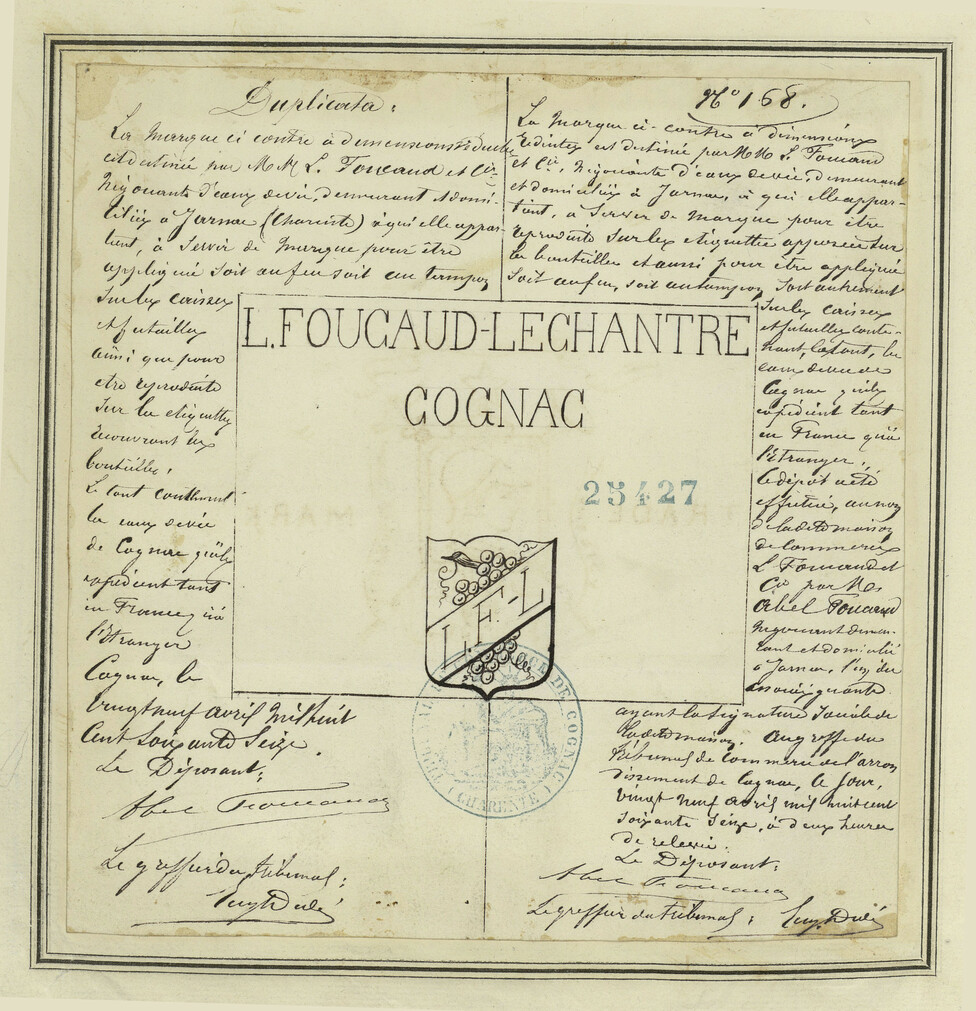 Duplicata :
La marque ci contre à dimensions réduites
est destinée par M.M. L. Foucaud et Cie
Négociants d'eaux de vie, demeurant & domi-
ciliés à Jarnac (Charente) à qui elle appar-
tient, à servir de marque pour être
appliquée soit au feu soit au tampon
sur les caisses
et futailles
ainsi que pour
etre reproduite
sur les etiquettes
recouvrant les
bouteilles,
Le tout contenant
les eaux de vie
de Cognac qu'ils
expédient tant
en France qu'à
l'Etranger
Cognac, le
vingt neuf avril mil huit
cent soixante seize.
Le Déposant :
Abel Foucaud
Le greffier du tribunal :
No 168.
La marque ci-contre à dimensions
réduites est destinée par MM L. Foucaud
et Cie, Négociants d'eaux de vie, demeurant
et domiciliés à Jarnac, à qui elle appar-
tient, à servir de marque pour être
reproduite sur les etiquettes apposées sur
les bouteilles et aussi pour être appliquée
soit au feu, soit au tampon, soit autrement
sur les caisses
et futailles conte-
nant, le tout, les
eaux de vie de
Cognac qu'ils
expédient tant
en France qu'à
l'Etranger.
Le dépôt a été
effectué, au nom
de la dite maison
de commerce
L. Foucaud et
Cie par M.
Abel Foucaud
négociant demeu-
rant et domicilié
à Jarnac, l'un des
associés gérants
ayant la signature sociale de
la dite maison. Au greffe du
tribunal de commerce de l'arron
dissement de Cognac, le jour,
vingt neuf avril mil huit cent
soixante seize, à deux heures
de relevée.
Le Déposant :
Abel Foucaud
Le greffier du tribunal :
L.FOUCAUD-LECHANTRE
COGNAC
25427
L.F-L
DE COGNAC
(CHARENTE)